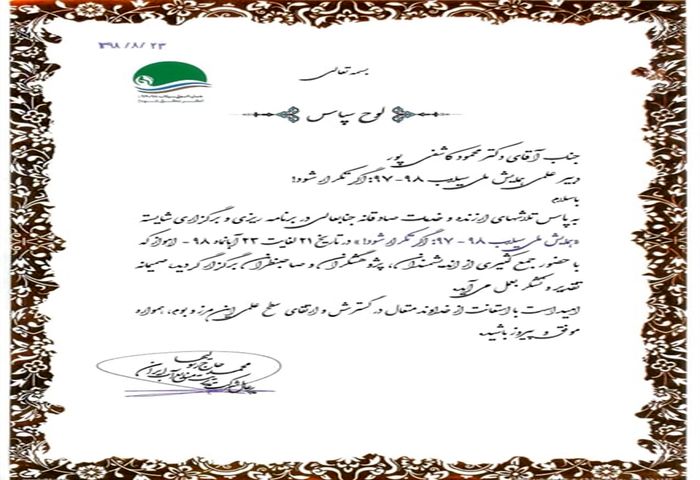 ۱۳۹۸/۸/۲۳
بسمه تعالی
لوح سپاس
جناب آقای دکتر محمود کاشفی پور
دبیر علمی همایش ملی سیلاب ۹۸-۹۷؛ اگر تکرار شود!
با سلام
به پاس تلاشهای ارزنده و خدمات صادقانه جنابعالی در برنامه ریزی و برگزاری شایسته
«همایش ملی سیلاب ۹۸-۹۷؛ اگر تکرار شود!» در تاریخ ۲۱ لغایت ۲۳ آبانماه ۹۸ - اهواز که
با حضور جمع کثیری از اندیشمندان، پژوهشگران و صاحبنظران برگزار گردید، صمیمانه
تقدیر و تشکر بعمل می آید.
امید است با استعانت از خداوند متعال در گسترش و ارتقای سطح علمی این مرز و بوم، همواره
موفق و پیروز باشید.
محمد حاج رسولیها
مدیرعامل شرکت مدیریت منابع آب ایران